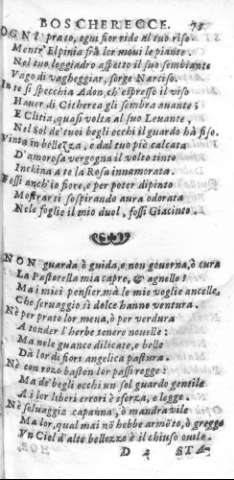 BOSCHERECCE. 73
OGNI prato, ogni fior ride al tuo riso.
Mentr' Elpinia frà lor moui le piante.
Nal tuo leggiadro aspetto il suo sembiante
Vago di vagheggiar, sorge Narciso.
In te si specchia Adon, ch'espresso il viso
Hauer di Citherea gli sembra auante;
E Clitia, quasi volta al suo Leuante,
Nel Sol de' tuoi begli occhi il guardo hà fiso.
Vinta in bellezza, e dal tuo piè calcata
D'amorosa vergogna il volto tinto
Inchina a te la Rosa innamorata.
Fossi anch'io fiore, e per poter dipinto
Mostrarti sospirando aura odorata
Nele foglie il mio duol, fossi Giacinto.
NON guarda ò guida, e non gouerna, ò cura
La Pastorella mia capre, & agnelle:
Ma i miei pensier, mà le mie voglie ancelle,
Che seruaggio sì dolce hanno ventura.
Nè per prato lor mena, ò per verdura
A tonder l'herbe tenere nouelle:
Ma nele guance dilicate, e belle
Dà lor di fiori angelica pastura.
Nè con rozo baston lor passi regge:
Ma de' begli occhi un sol guardo gentile
A i lor liberi errori è sferza, e legge.
Nè seluaggia capanna, ò mandra vile
Ma lor, qual mai nō hebbe armēto, ò gregge
Vn Ciel d'alte bellezze è il chiuso ouile.
D 4 STA-